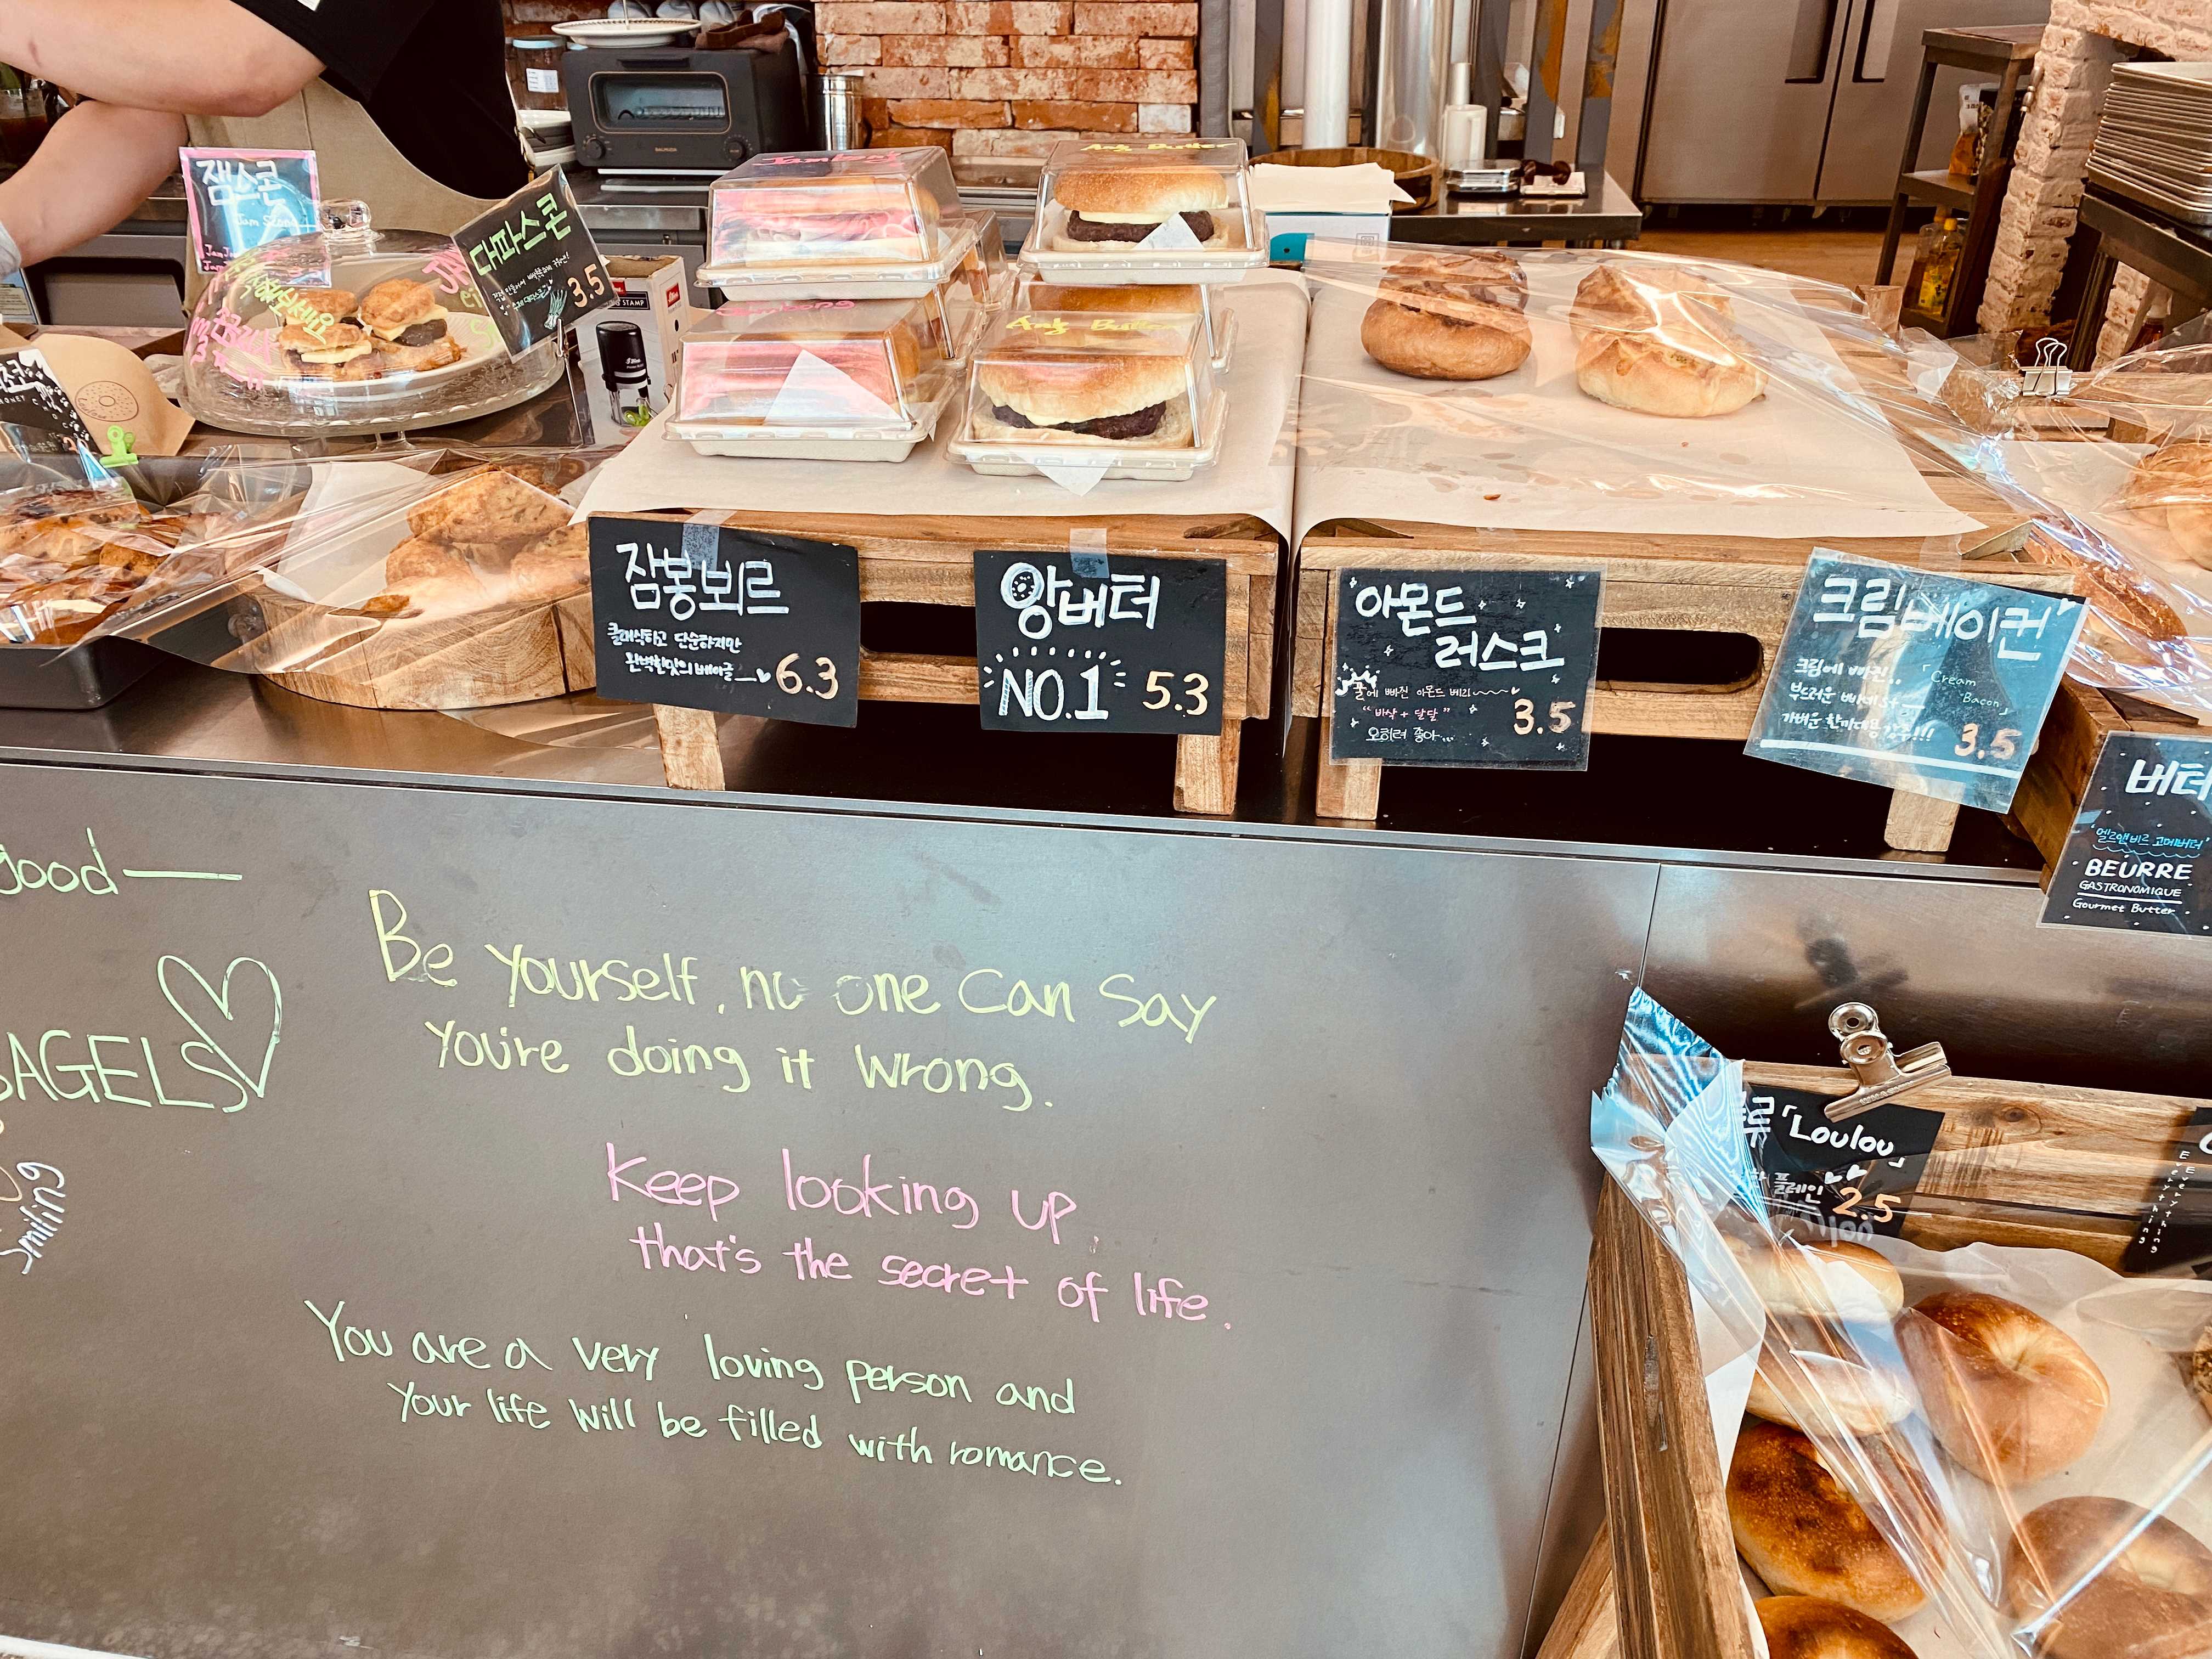 잼스콘
Jam Scone
대파스콘
3.5
STAMP
BALMUDA
Jambong
Ang Butter
Ang Butter
잠봉뵈르
클래식하고 단순하지만
완벽한맛의 베이글
6.3
앙버터
NO.1 5.3
아몬드
러스크
꿀에 빠진 아몬드 베리
"바삭 + 달달"
오히려 좋아...
3.5
크림베이컨
크림에 빠진..
「Cream
Bacon」
부드러운
가벼운 한끼대용
3.5
버터
엘르앤비르 고메버터
BEURRE
GASTRONOMIQUE
Gourmet Butter
good
BAGELS
Be yourself, no one can say
you're doing it wrong.
Keep looking up.
that's the secret of life.
You are a very loving person and
your life will be filled with romance.
「Loulou」
플레인
2.5
Everything